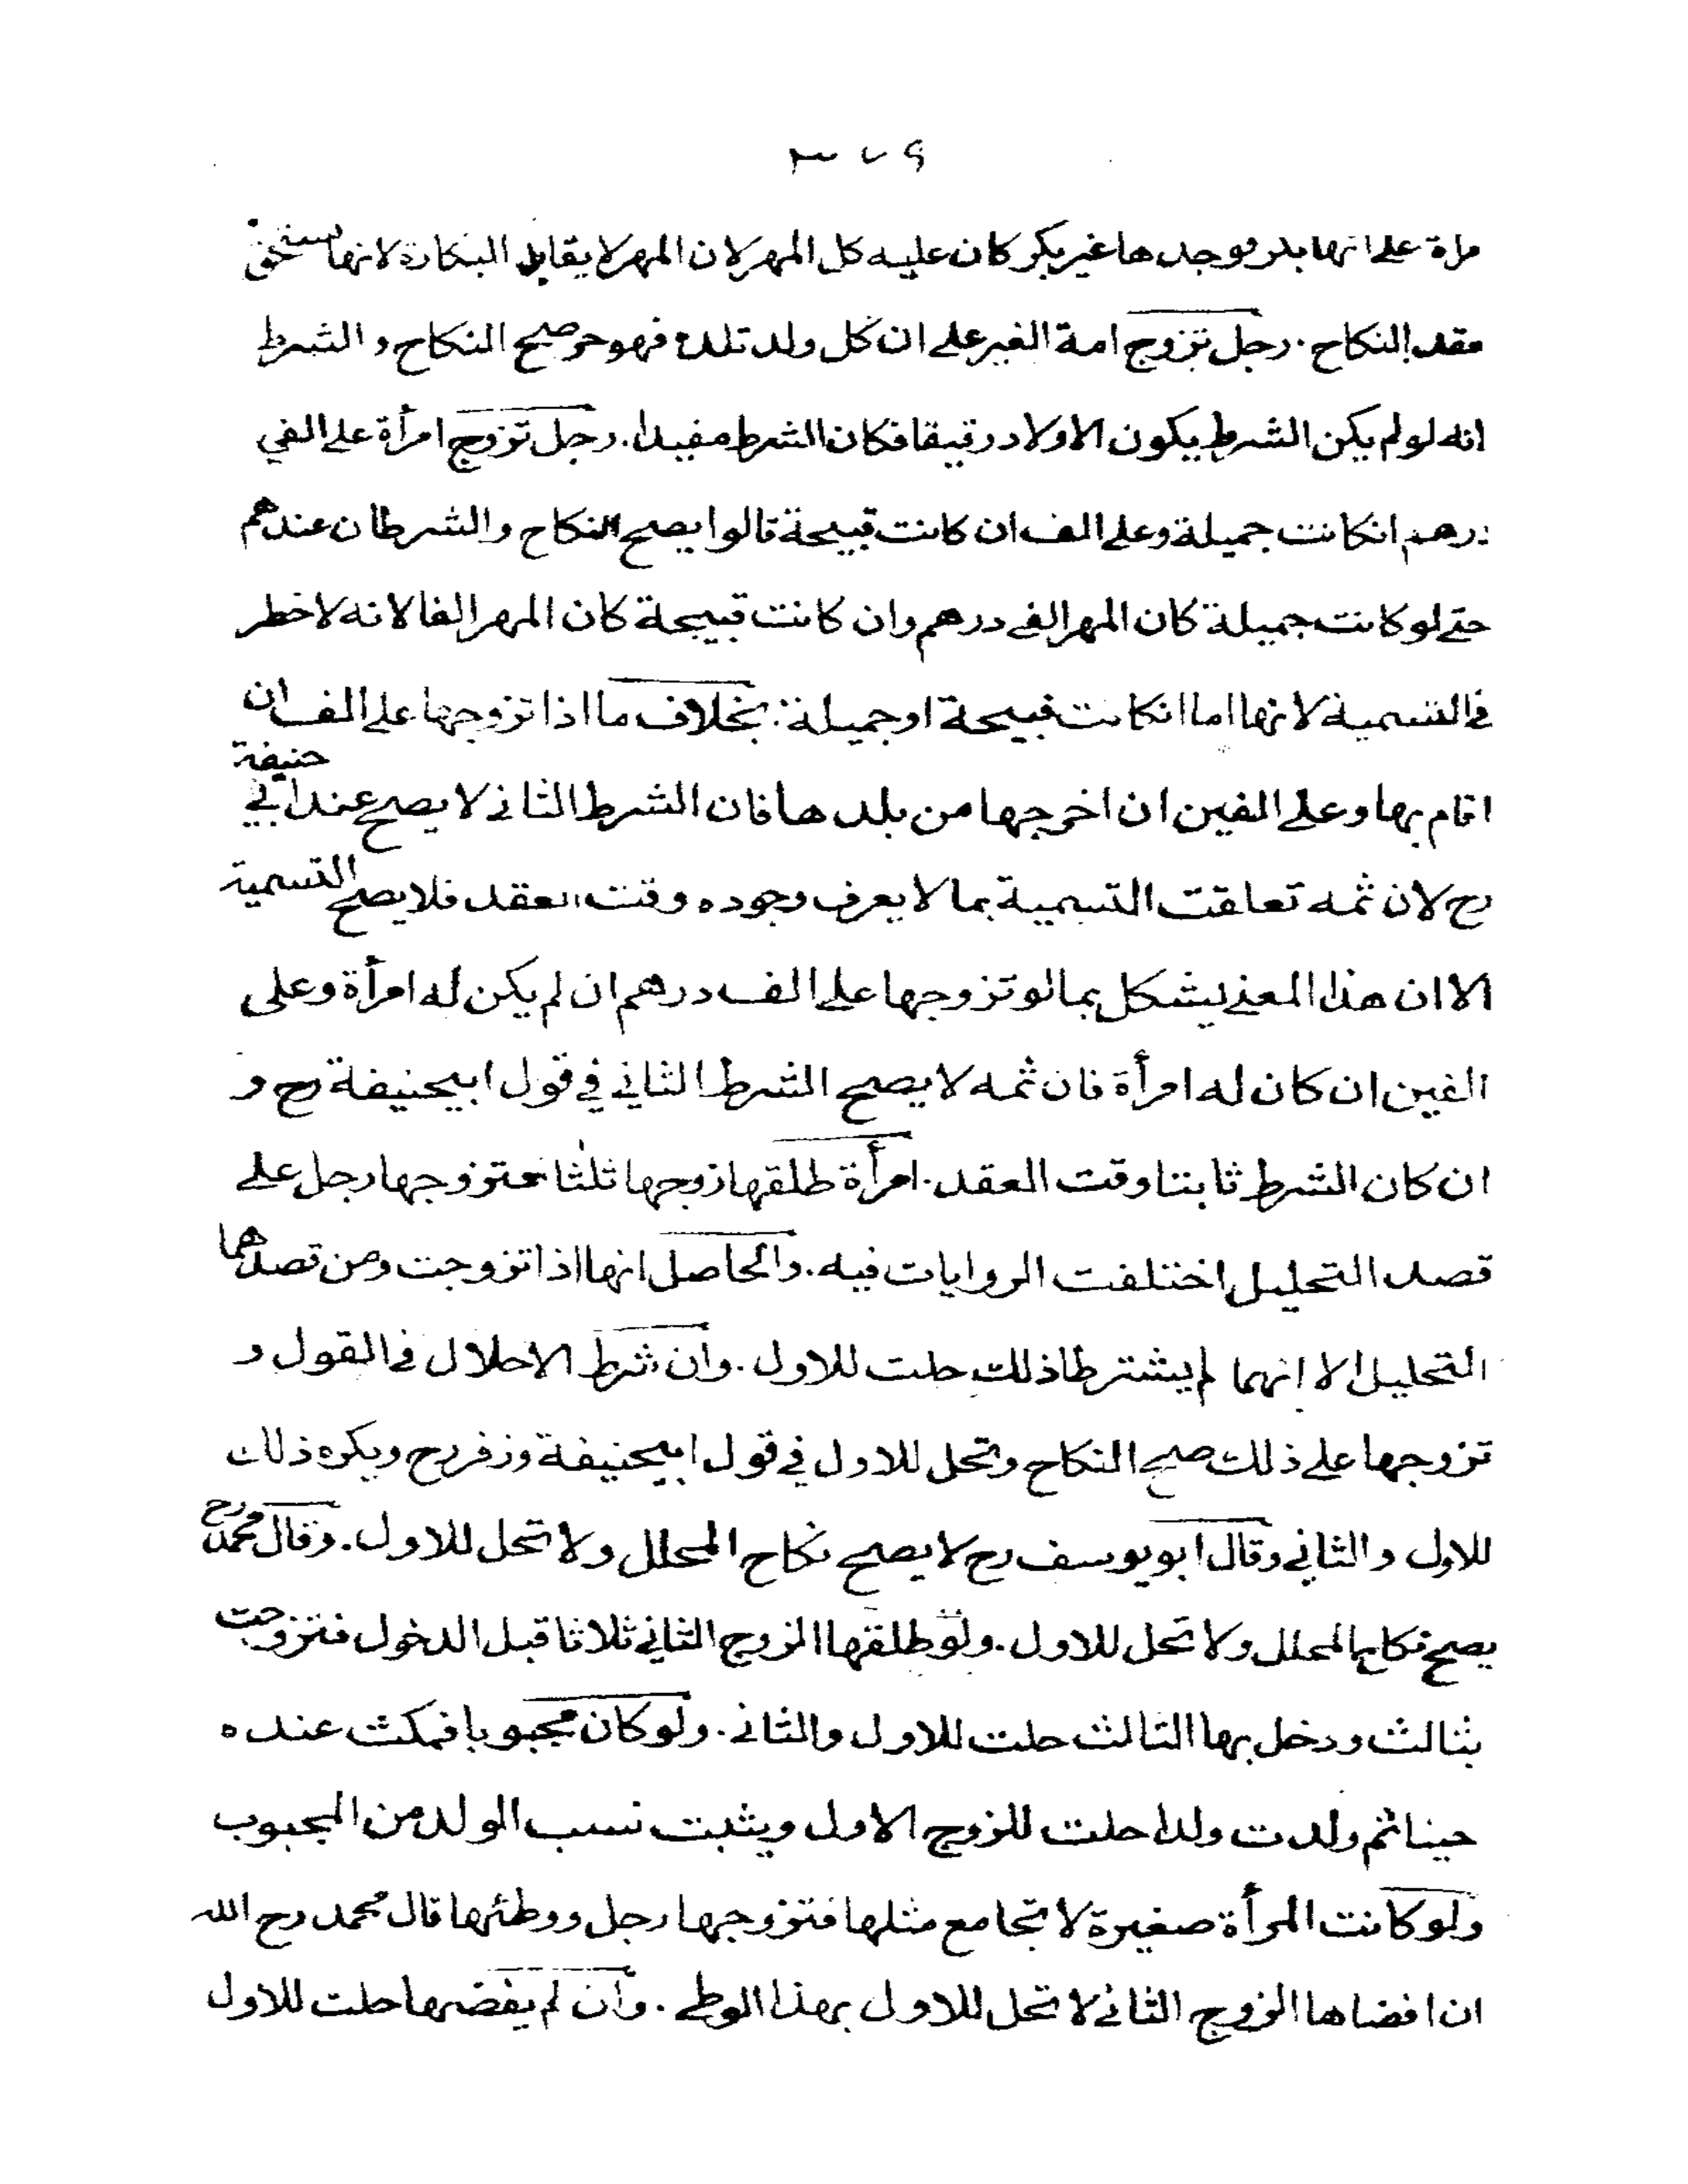 مرأة على انها بكر فوجدها غير بكر كان عليه كل المهر لان المهر لا يقابل البكارة لانها تستحق
بعقد النكاح . رجل تزوج امة الغير على ان كل ولد تلده فهو حر صح النكاح و الشرط
انه لو لم يكن الشرط يكون الاولاد رقيقا فكان الشرط مفيدا . رجل تزوج امرأة على الفي
درهم انكانت جميلة وعلى الف ان كانت قبيحة قالوا يصح النكاح والشرطان عندهم
حتى لو كانت جميلة كان المهر الفى درهم وان كانت قبيحة كان المهر الفا لانه لا خطر
فى التسمية لانها اما انكانت قبيحة او جميلة . بخلاف ما اذا تزوجها على الف ان
اقام بها وعلى الفين ان اخرجها من بلدها فان الشرط الثانى لا يصح عند ابي حنيفة
رح لان ثمه تعلقت التسمية بما لا يعرف وجوده وقت العقد فلا يصح التسمية
الا ان هذا المعنى يشكل بما لو تزوجها على الف درهم ان لم يكن له امرأة وعلى
الفين ان كان له امرأة فان ثمه لا يصح الشرط الثاني في قول ابيحنيفة رح و
ان كان الشرط ثابتا وقت العقد . امرأة طلقها زوجها ثلثا فتزوجها رجل على
قصد التحليل اختلفت الروايات فيه . والحاصل انها اذا تزوجت ومن قصدهما
التحليل الا انهما لم يشترطا ذلك حلت للاول . وان شرط الاحلال فى القول و
تزوجها على ذلك صح النكاح وتحل للاول في قول ابيحنيفة وزفر رح ويكره ذلك
للاول والثاني وقال ابو يوسف رح لا يصح نكاح المحلل ولا تحل للاول . وقال محمد رح
يصح نكاح المحلل ولا تحل للاول . ولو طلقها الزوج الثاني ثلاثا قبل الدخول فتزوجت
بثالث ودخل بها الثالث حلت للاول والثانى . ولو كان مجبوبا فمكث عنده
حينا ثم ولدت ولدا حلت للزوج الاول ويثبت نسب الولد من المجبوب
ولو كانت المرأة صغيرة لا تجامع مثلها فتزوجها رجل ووطئها قال محمد رح الله
ان افضاها الزوج الثانى لا تحل للاول بهذا الوطى . وان لم يفضها حلت للاول